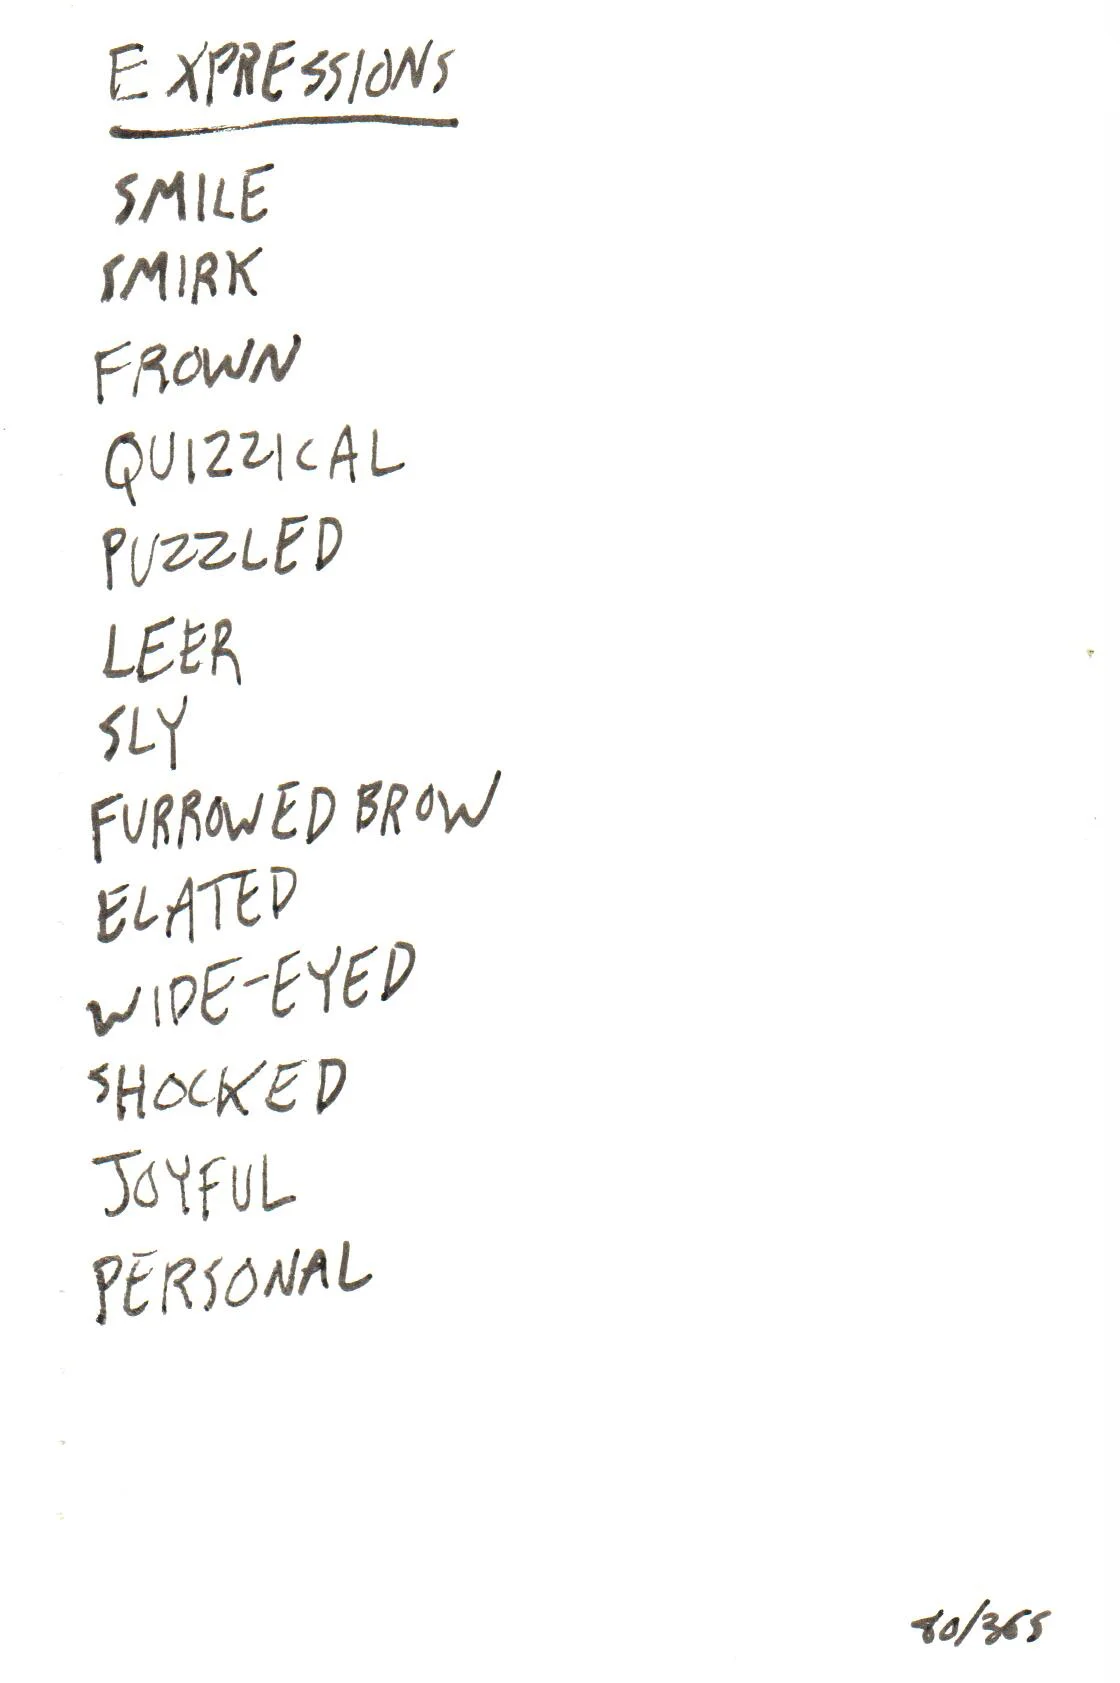 EXPRESSIONS
SMILE
SMIRK
FROWN
QUIZZICAL
PUZZLED
LEER
SLY
FURROWED BROW
ELATED
WIDE-EYED
SHOCKED
JOYFUL
PERSONAL
80/365